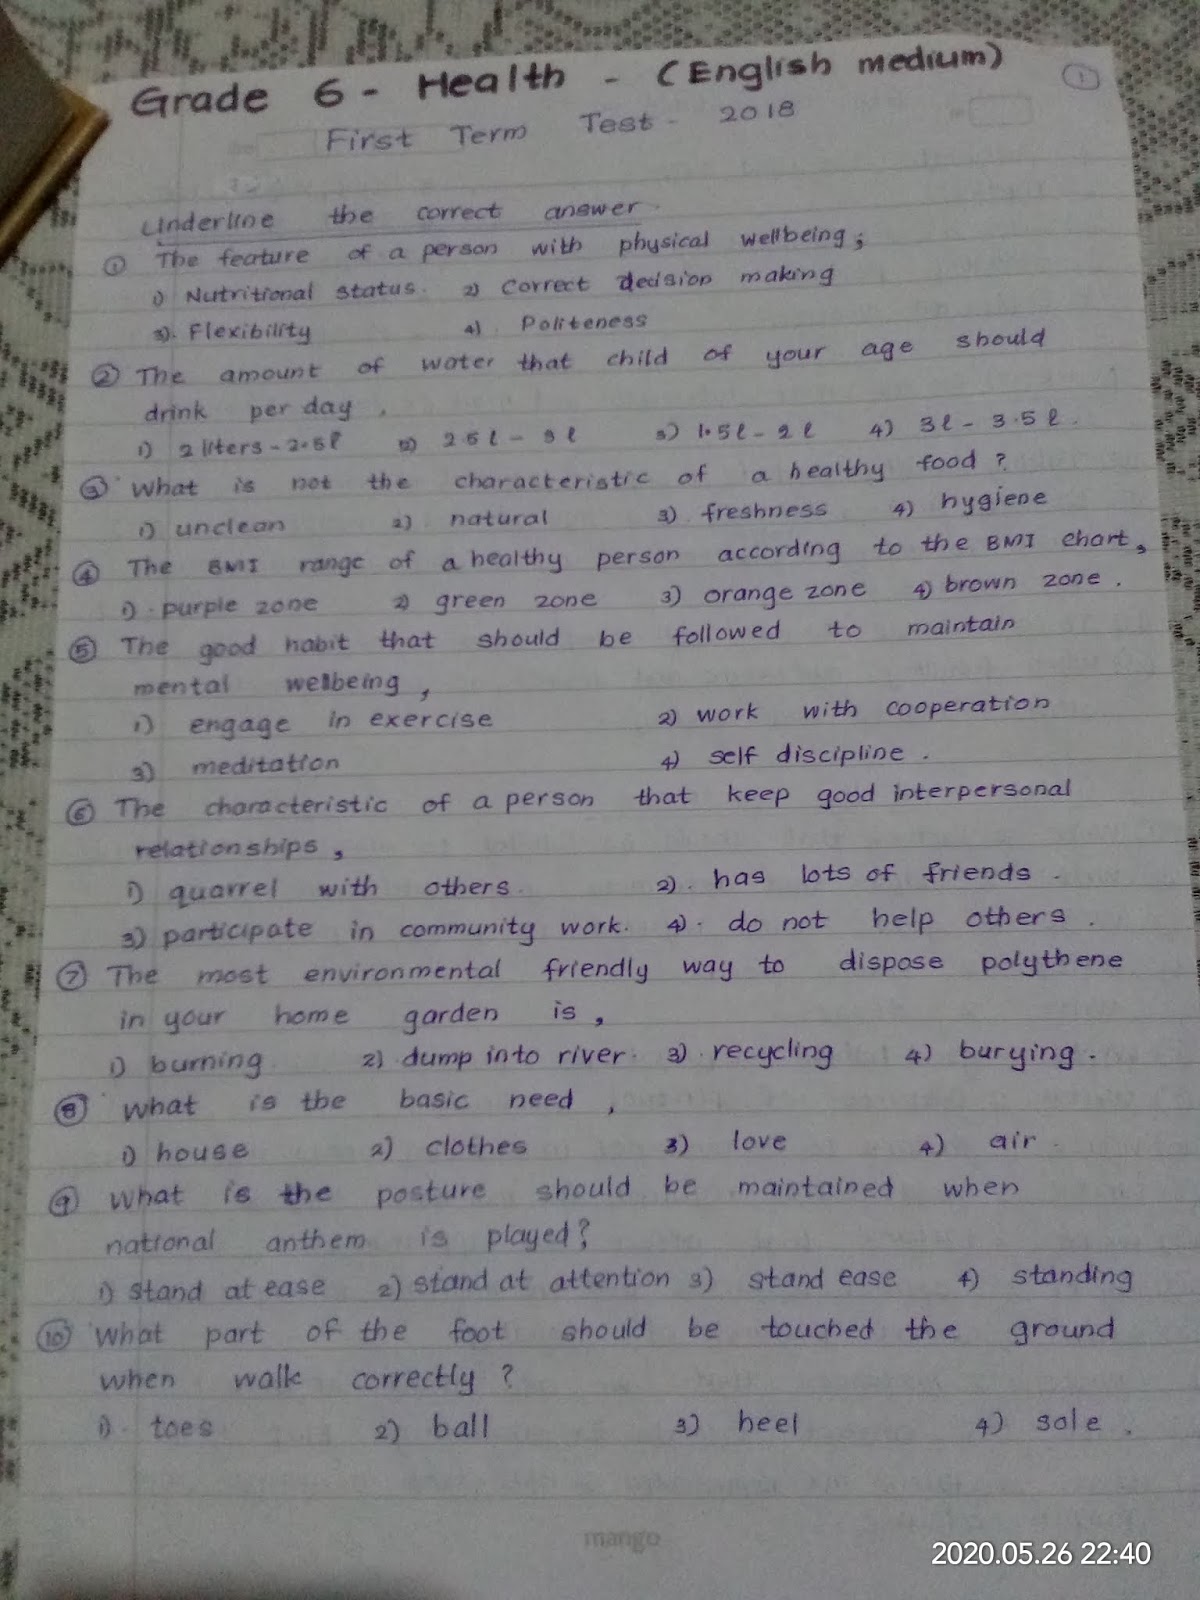 Grade 6 - Health - (English medium) 1
First Term Test - 2018
Underline the correct answer.
1 The feature of a person with physical wellbeing;
1) Nutritional status. 2) Correct decision making
3). Flexibility 4) Politeness
2 The amount of water that child of your age should
drink per day,
1) 2 liters - 2.5l 2) 2.5l - 3l 3) 1.5l - 2l 4) 3l - 3.5l.
3 What is not the characteristic of a healthy food?
1) unclean 2) natural 3) freshness 4) hygiene
4 The BMI range of a healthy person according to the BMI chart,
1). purple zone 2) green zone 3) orange zone 4) brown zone.
5 The good habit that should be followed to maintain
mental wellbeing,
1) engage in exercise 2) work with cooperation
3) meditation 4) self discipline.
6 The characteristic of a person that keep good interpersonal
relationships,
1) quarrel with others. 2). has lots of friends.
3) participate in community work. 4). do not help others.
7 The most environmental friendly way to dispose polythene
in your home garden is,
1) burning 2) dump into river. 3). recycling 4) burying.
8 What is the basic need,
1) house 2) clothes 3) love 4) air.
9 What is the posture should be maintained when
national anthem is played?
1) stand at ease 2) stand at attention 3) stand ease 4) standing
10 What part of the foot should be touched the ground
when walk correctly?
1). toes 2) ball 3) heel 4) sole.
mango
2020.05.26 22:40